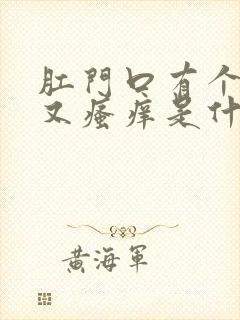 肛門口有个
又瘙痒是什
黄海軍